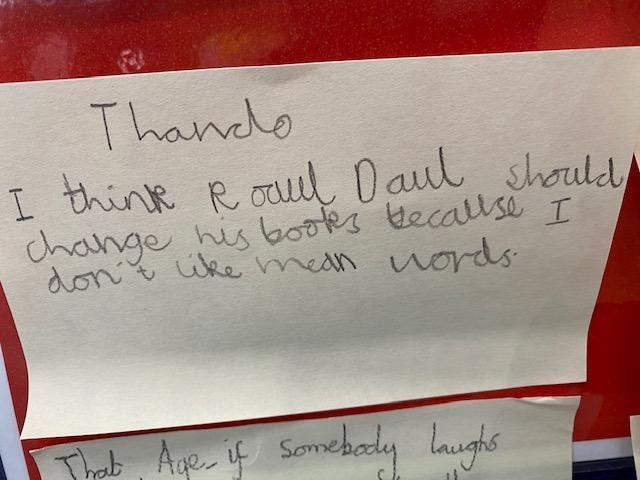 Thando
I think Roaul Daul should
change his books because I
don't like mean words.
That Age-if somebody laughs